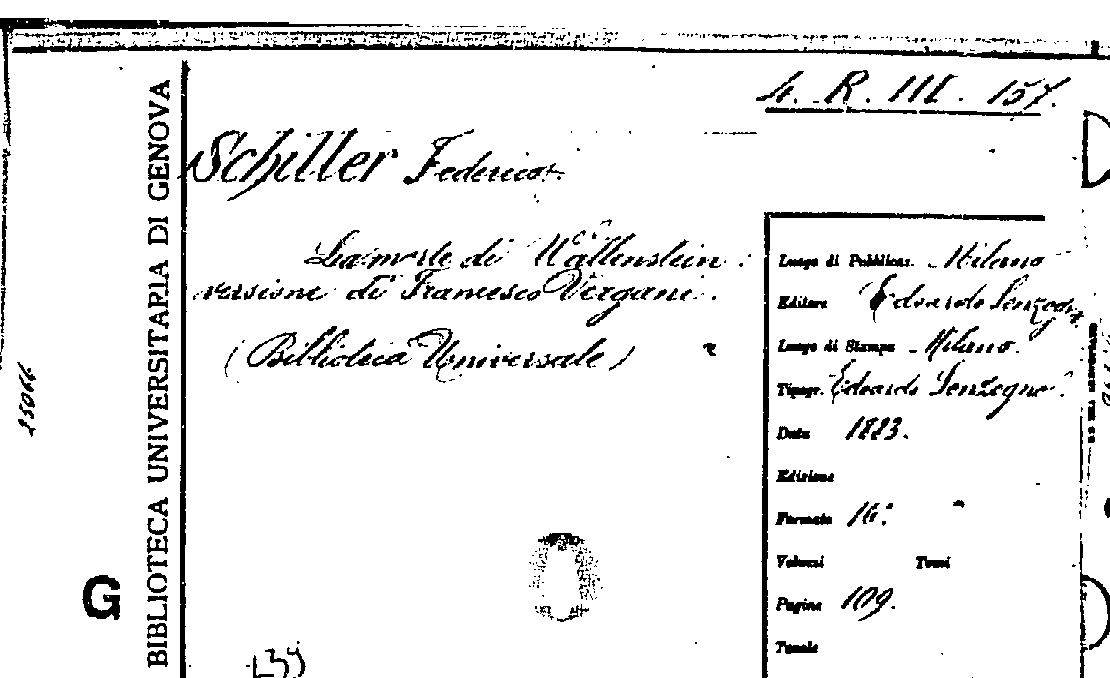 4. R. III. 157.
Schiller Federico.
La morte di Wallenstein:
versione di Francesco Vergani.
(Biblioteca Universale)
Luogo di Pubblicaz. Milano
Editore Edoardo Sonzogno
Luogo di Stampa Milano.
Tipogr. Edoardo Sonzogno.
Data 1883.
Edizione
Formato 16.°
Volumi Tomi
Pagine 109.
Tavole
BIBLIOTECA UNIVERSITARIA DI GENOVA
G
25066